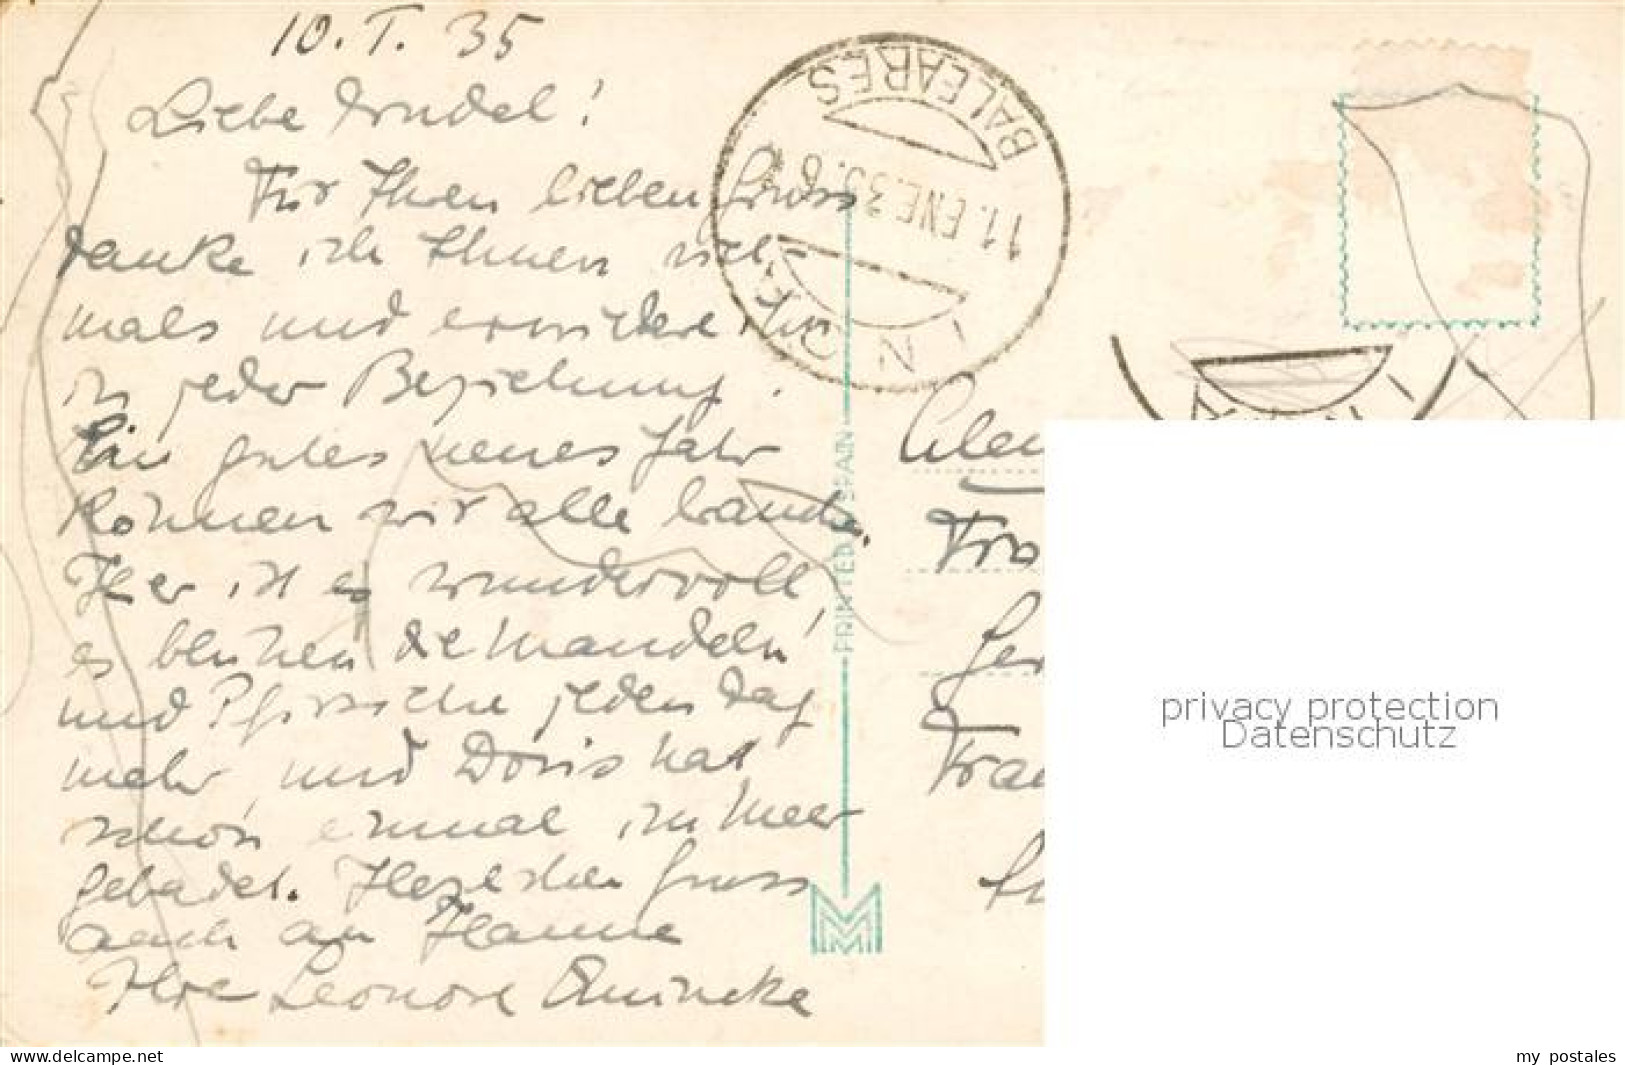 10. I. 35
Liebe Trudel!
Für Ihren lieben Gruss
danke ich Ihnen viel-
mals und erwidere ihn
in jeder Beziehung.
Ein gutes neues Jahr
können wir alle brauchen.
Hier ist es wundervoll,
es blühen die Mandeln
und Pfirsiche jeden Tag
mehr, und Doris hat
schon einmal im Meer
gebadet. Herzlichen Gruss
auch an Hanne
Ihre Leonore
BALEARES
11. ENE. 35.
PRINTED IN SPAIN
Frau
privacy protection
Datenschutz
www.ansichtskartenversand.com
my postales